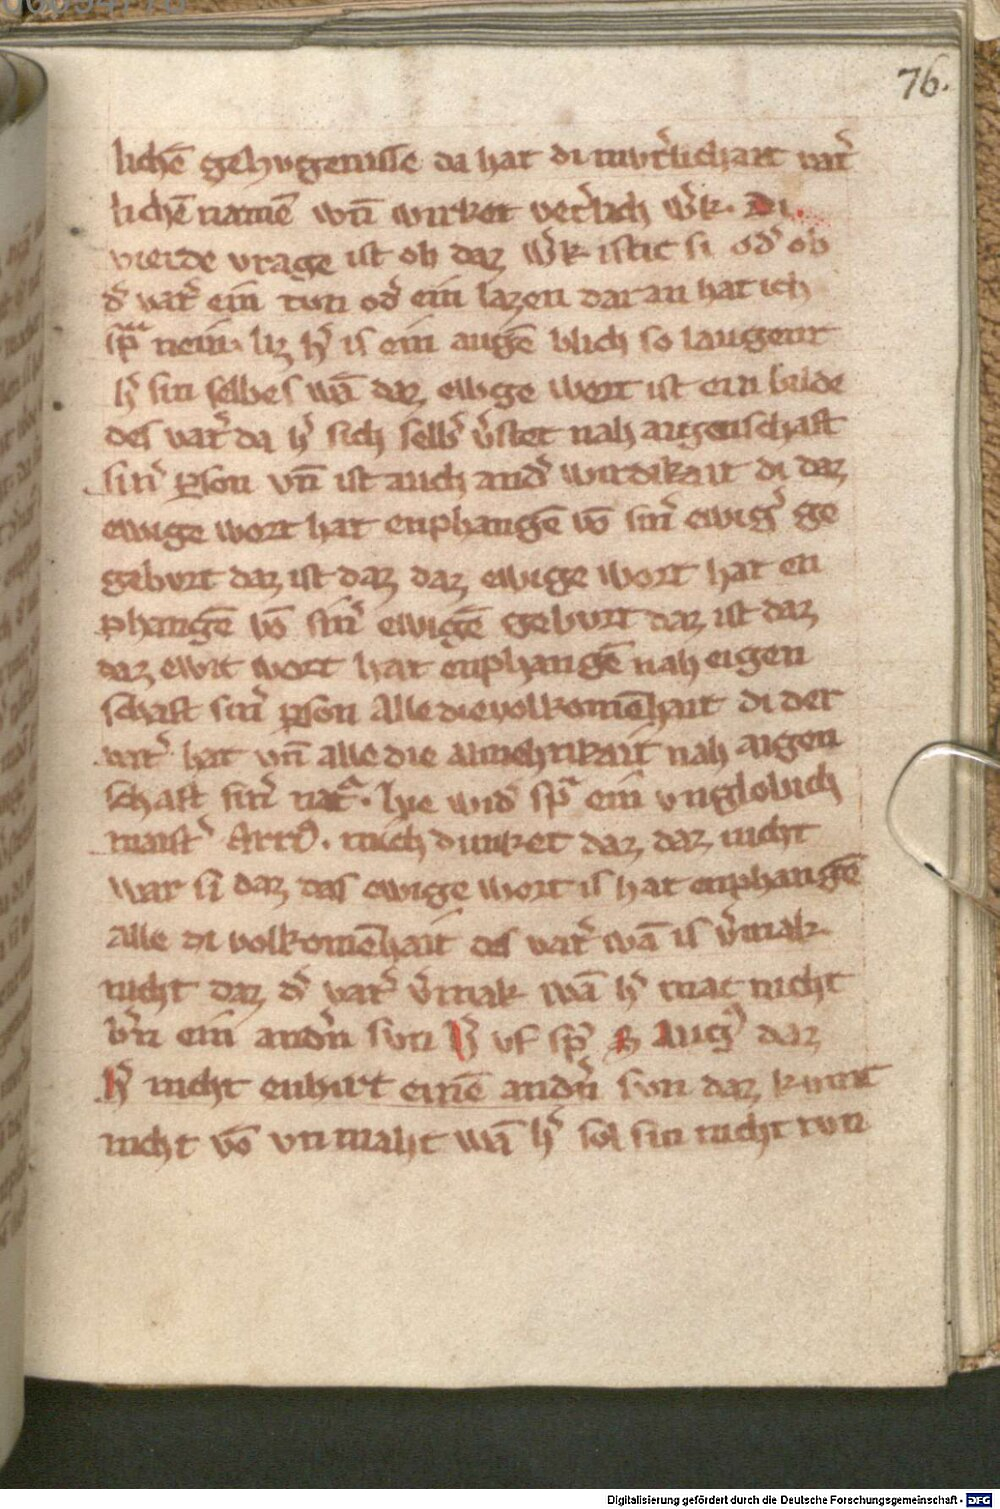 76.
lichē gehvgenisse da hat di mvt᷑lichait vat᷑
lichē namē vn̄ wirket vet᷑lich w᷑k. Di
vierde vrage ist ob daz w᷑k istic si od᷑ ob
d᷑ vat᷑ ein tvn od᷑ ein lazen daran hat ich
sp̃ᵃ nein. liz h᷑ is ein augē blich so laugent
h᷑ sin selbes wā daz ewige wort ist ein bilde
des vat᷑ da h᷑ sich selb᷑ v᷑stet nah aigenschaft
sin᷑ ꝑson vn̄ ist auch and᷑ wirdikait di daz
ewige wort hat enphangē vō sin᷑ ewig᷑ ge
gebvrt daz ist daz daz ewige wort hat en
phangē vō sin᷑ ewigē gebvrt daz ist daz
daz ewit wort hat enphangē nah eigen
schaft sin᷑ ꝑson Alle die volkomēhait di der
vat᷑ hat vn̄ alle die almehtikait nah aigen
schaft sin᷑ nat᷑ᵃ. hie wid᷑ sp̃ᵃ ein vnglobich
maist᷑ . mich dunket daz daz nicht
war si daz das ewige wort is hat enphangē
alle di volkomēhait des vat᷑ wā is v᷑mak
nicht daz d᷑ vat᷑ v᷑mak wā h᷑ mac nicht
b᷑n ein and᷑n svn h᷑ vf sp̃ᵃ S Aug᷑ daz
h᷑ nicht enhirt einē and᷑n svn daz kumt
nicht vō vnmaht wā h᷑ sol sin nicht tvn
Digitalisierung gefördert durch die Deutsche Forschungsgemeinschaft - DFG